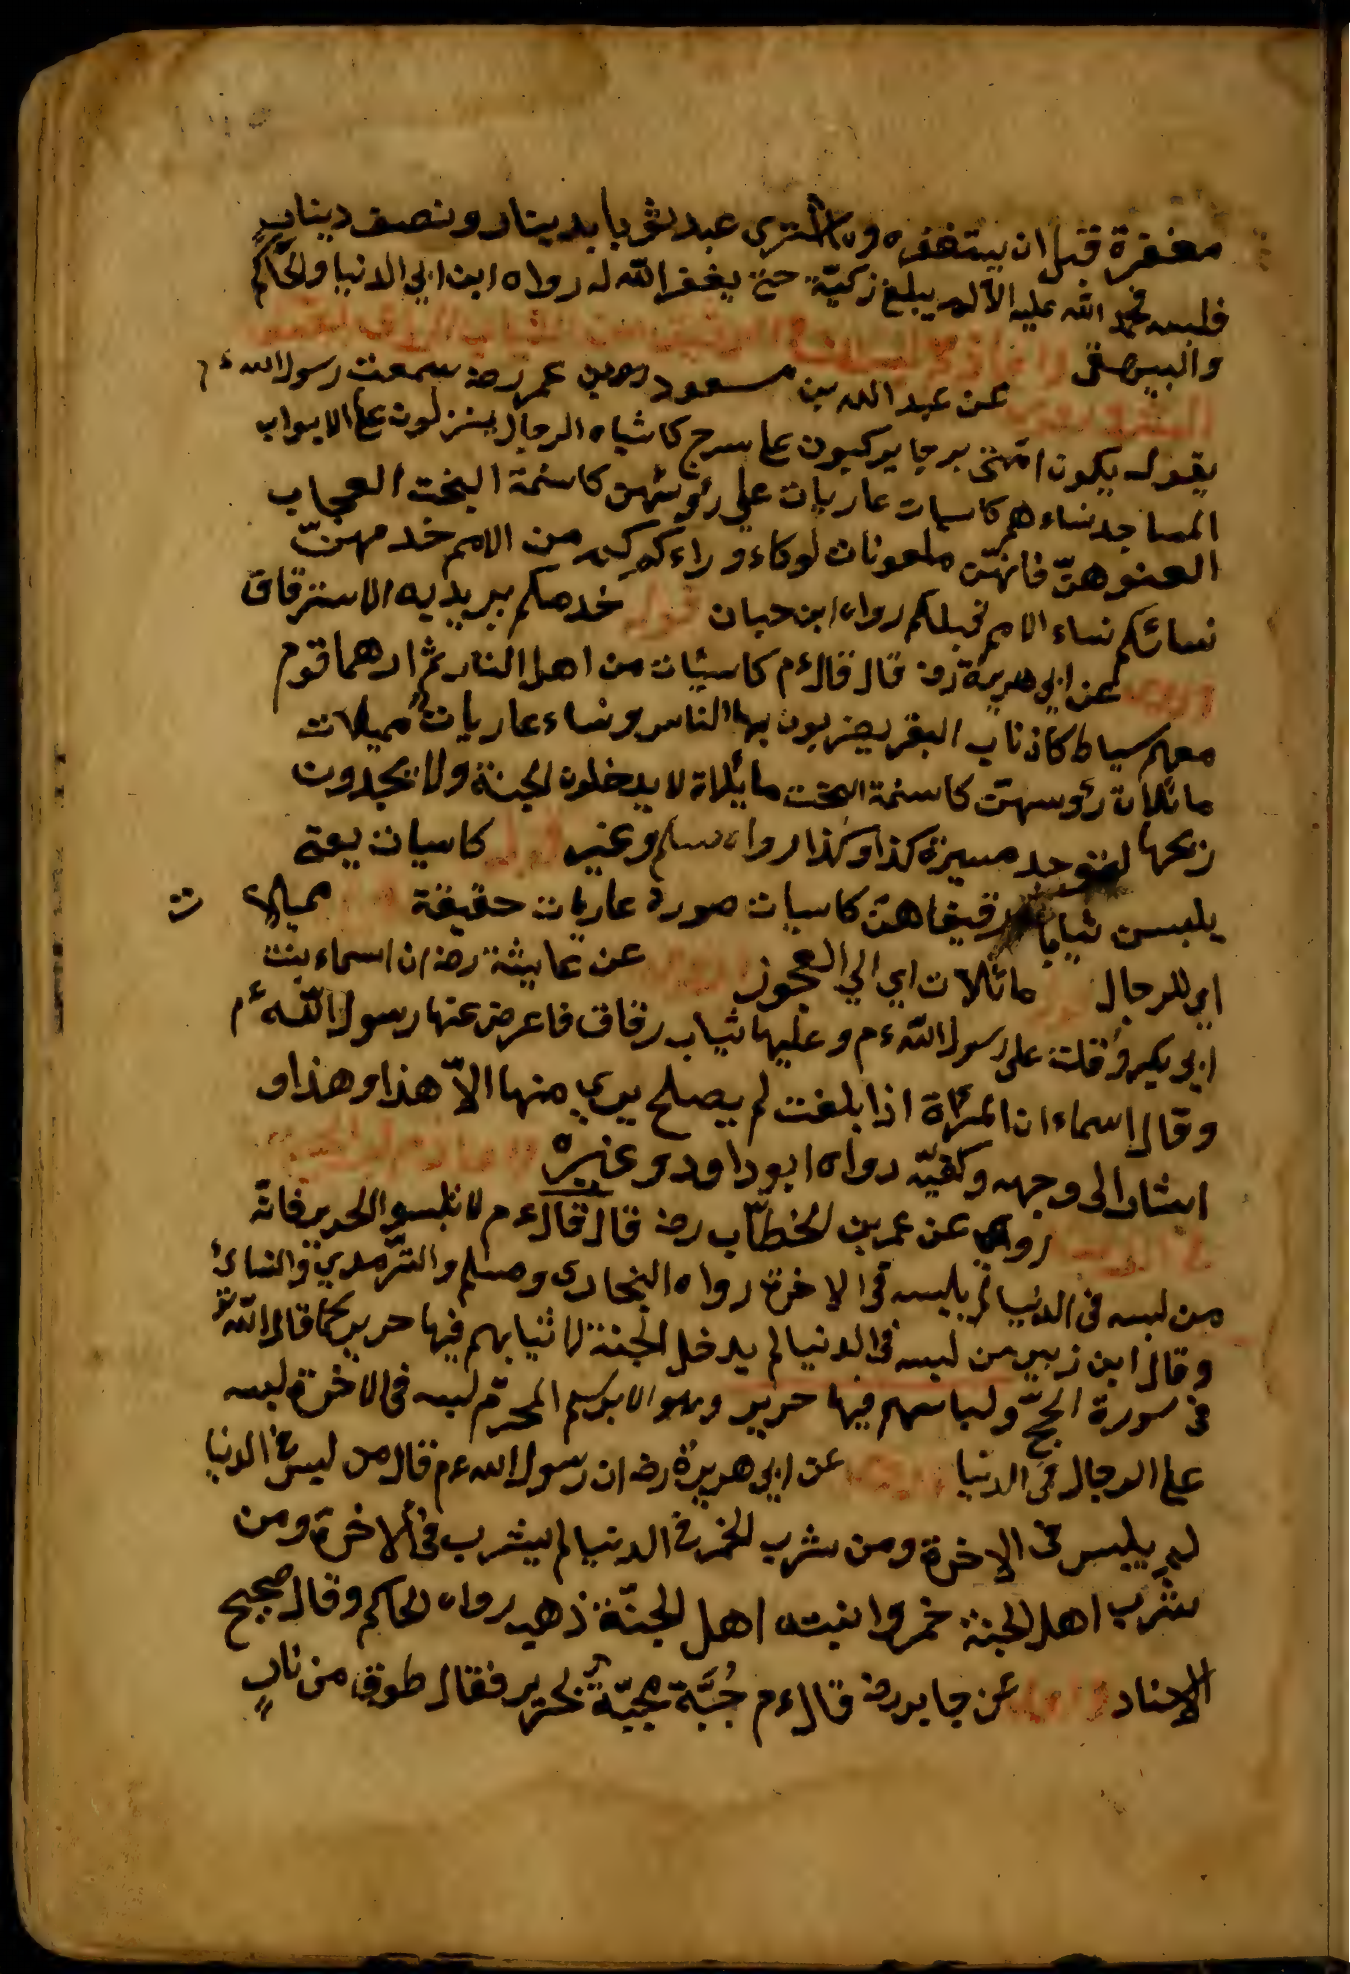 مغفرة قبل ان يستغفره وما اشترى عبد ثوبا بدينار ونصف دينار
فلبسه فحمد الله عليه الا لم يبلغ ركبته حتى يغفر الله له رواه ابن ابي الدنيا والحاكم
والبيهقى
عن عبد الله بن مسعود وبن عمر رضه سمعت رسول الله ءم
يقول يكون امتى برجا يركبون على سرج كاشباه الرجال ينزلون على الابواب
المساجد نساءهم كاسيات عاريات على رؤسهن كاسنمة البخت العجاب
العنوهنّ فانهنّ ملعونات لو كاء وراءكم من الامم خدمهنّ
نسائكم نساء الامم قبلكم رواه ابن حبان قوله خدمكم يريد به الاسترقاق
عن ابي هريرة رضه قال قال ءم كاسيات من اهل النار ثم ارهما قوم
معهم سياط كاذناب البقر يضربون بها الناس ونساء عاريات مميلات
مائلات رؤسهنّ كاسنمة البخت مائلاة لا يدخلون الجنة ولا يجدون
ريحها لتوجد مسيرة كذا وكذا رواه مسلم وغير قوله كاسيات يعنى
يلبسن ثيابا رقيقا هنّ كاسيات صورة عاريات حقيقة مميلات
اي للرجال مائلات اي الي العجوز عن عايشة رضه ان اسماء بنت
ابي بكر دخلت على رسول الله ءم وعليها ثياب رقاق فاعرض عنها رسول الله ءم
وقال اسماء ان المرأة اذا بلغت لم يصلح يرى منها الاّ هذا وهذا و
اشار الى وجهه وكفيّه رواه ابو داود وغيره
روى عن عمر بن الخطاب رضه قال قال ءم لا تلبسو الحرير فانّه
من لبسه فى الدنيا لم يلبسه فى الاخرة رواه البخارى ومسلم والترمدي والنسائ
وقال ابن زبير من لبسه فى الدنيا لم يدخل الجنة لا ثيابهم فيها حرير كما قال الله تع
فى سورة الحجّ ولباسهم فيها حرير وهو الابريسم المحرّم لبسه فى الاخرة لبسه
على الرجال فى الدنيا عن ابي هريرة رضه ان رسول الله ءم قال من لبس فى الدنيا
لم يلبس فى الاخرة ومن شرب الخمر فى الدنيا لم يشرب فى الاخرة ومن
شرب اهل الجنة خمر وانيته اهل الجنّة ذهب رواه الحاكم وقال صحيح
الاسناد عن جابر رضه قال ءم جُبّة مجيبّة بحرير فقال طوق من نارٍ